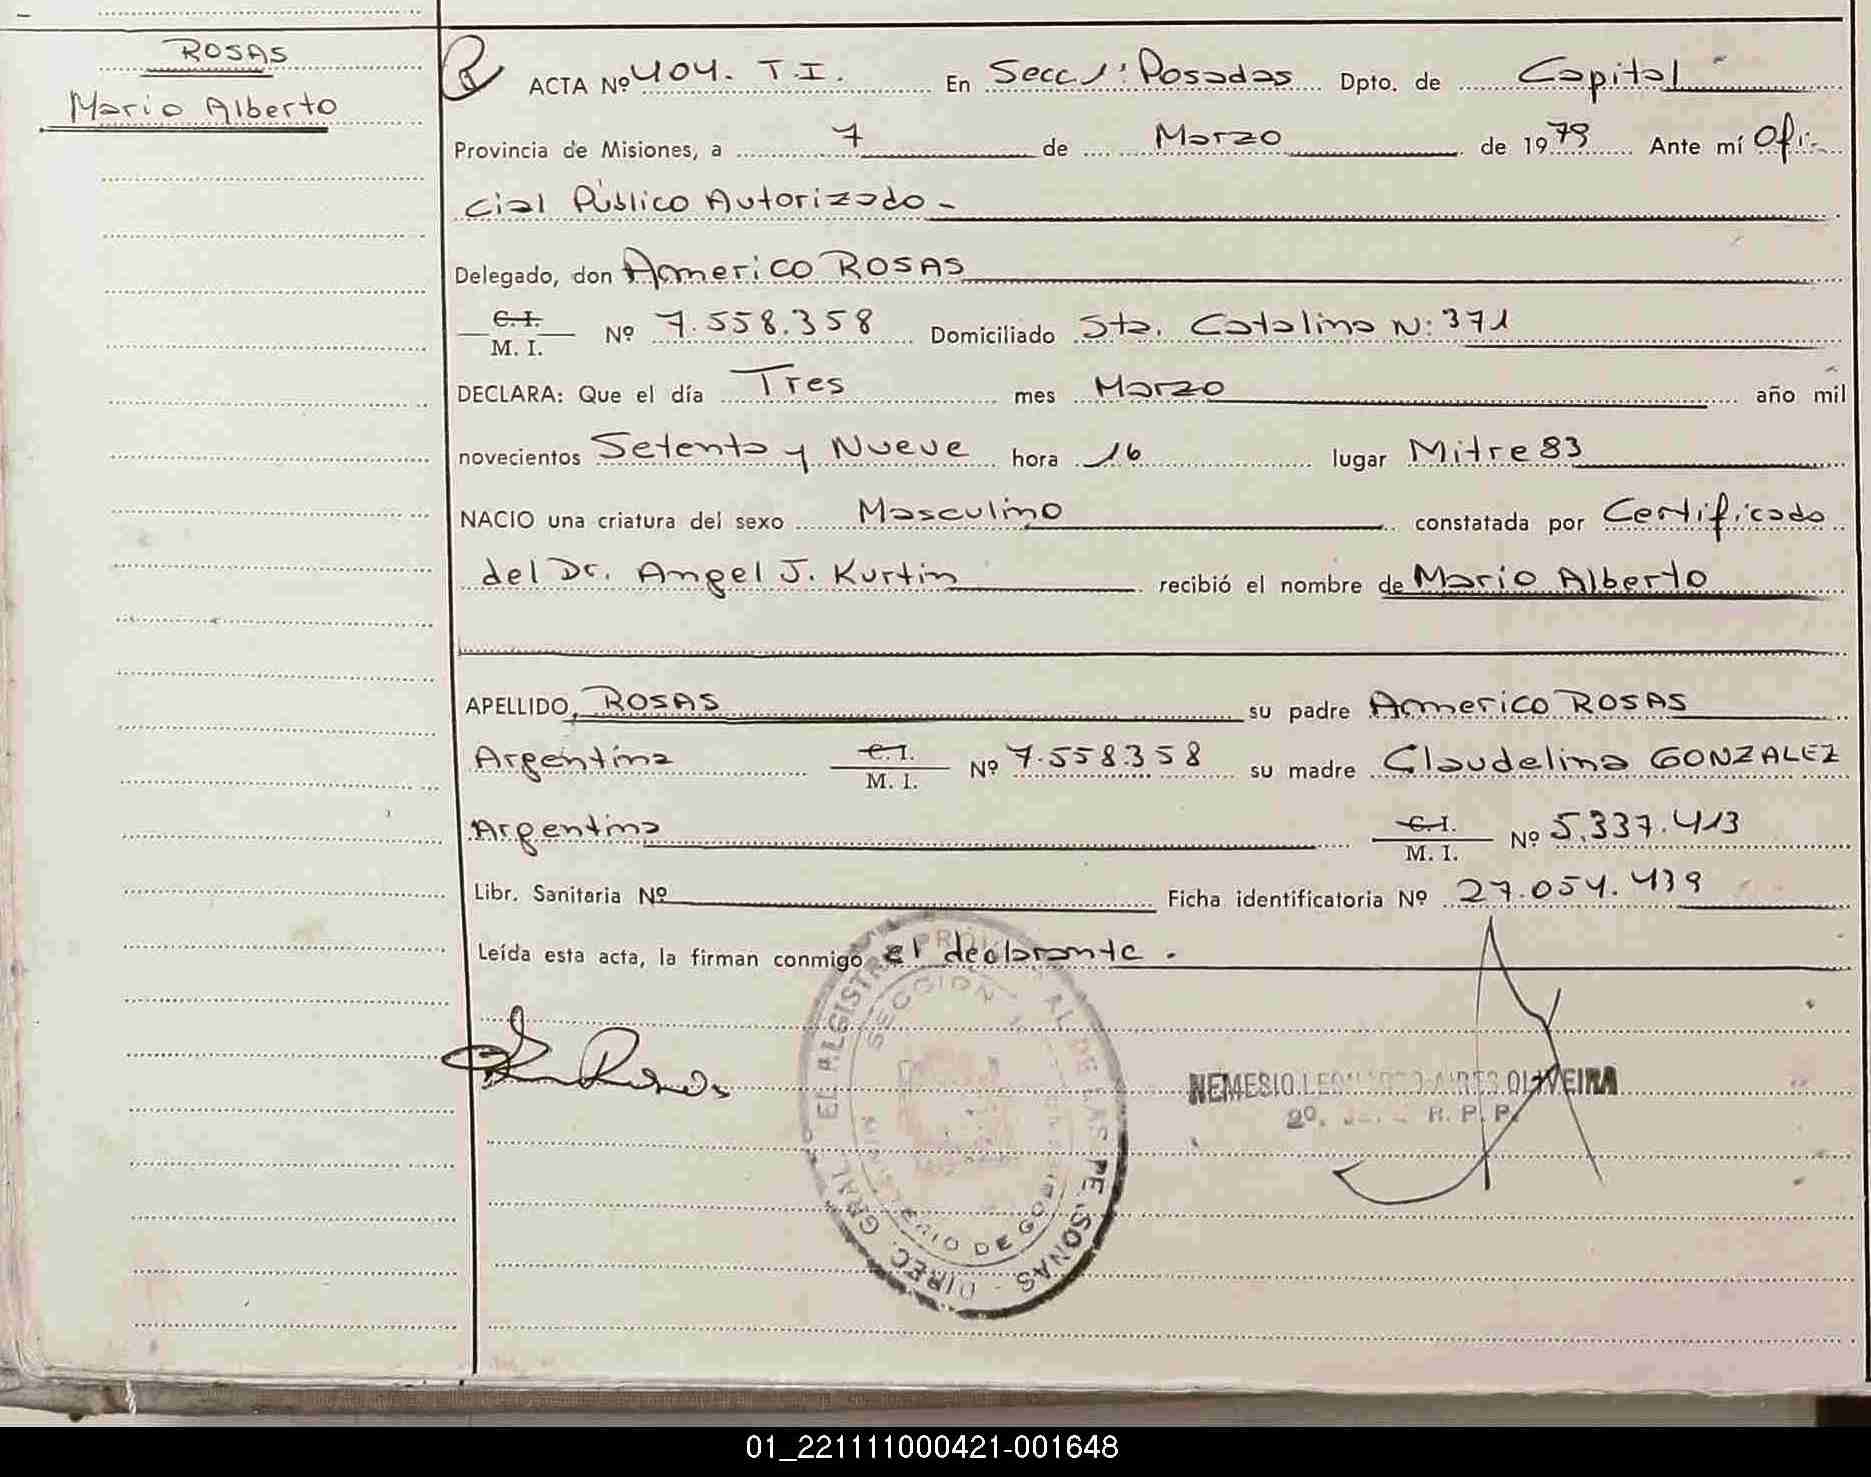 ROSAS
Mario Alberto
ACTA Nº 404. T.I. En Secc 1ª Posadas Dpto. de Capital
Provincia de Misiones, a 7 de Marzo de 1979 Ante mí Ofi-
cial Público Autorizado -
Delegado, don Americo ROSAS
C.I. M. I. Nº 7.558.358 Domiciliado Sta. Catalina Nº 371
DECLARA: Que el día Tres mes Marzo año mil
novecientos Setenta y Nueve hora 16 lugar Mitre 83
NACIO una criatura del sexo Masculino constatada por Certificado
del Dr. Angel J. Kurtin recibió el nombre de Mario Alberto
APELLIDO, ROSAS su padre Americo ROSAS
Argentina C.I. M. I. Nº 7.558358 su madre Claudelina GONZALEZ
Argentina C.I. M. I. Nº 5.337.413
Libr. Sanitaria Nº Ficha identificatoria Nº 27.054.439
Leída esta acta, la firman conmigo el declarante.
Rosas
NEMESIO OLIVEIRA
2º. R. P. P.
DIREC. GRAL. DE LAS PERSONAS
SECCION 1ª
MINISTERIO DE GOBIERNO
01_221111000421-001648